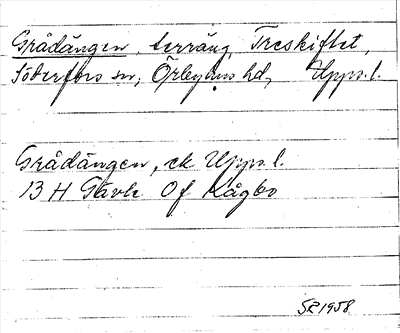 Grådängen, terräng, Treskiftet,
Söderfors sn, Örbyhus hd, Upps. l.
Grådängen, ek Upps. l.
13 H Gävle 0f Kågbo
SR 1958